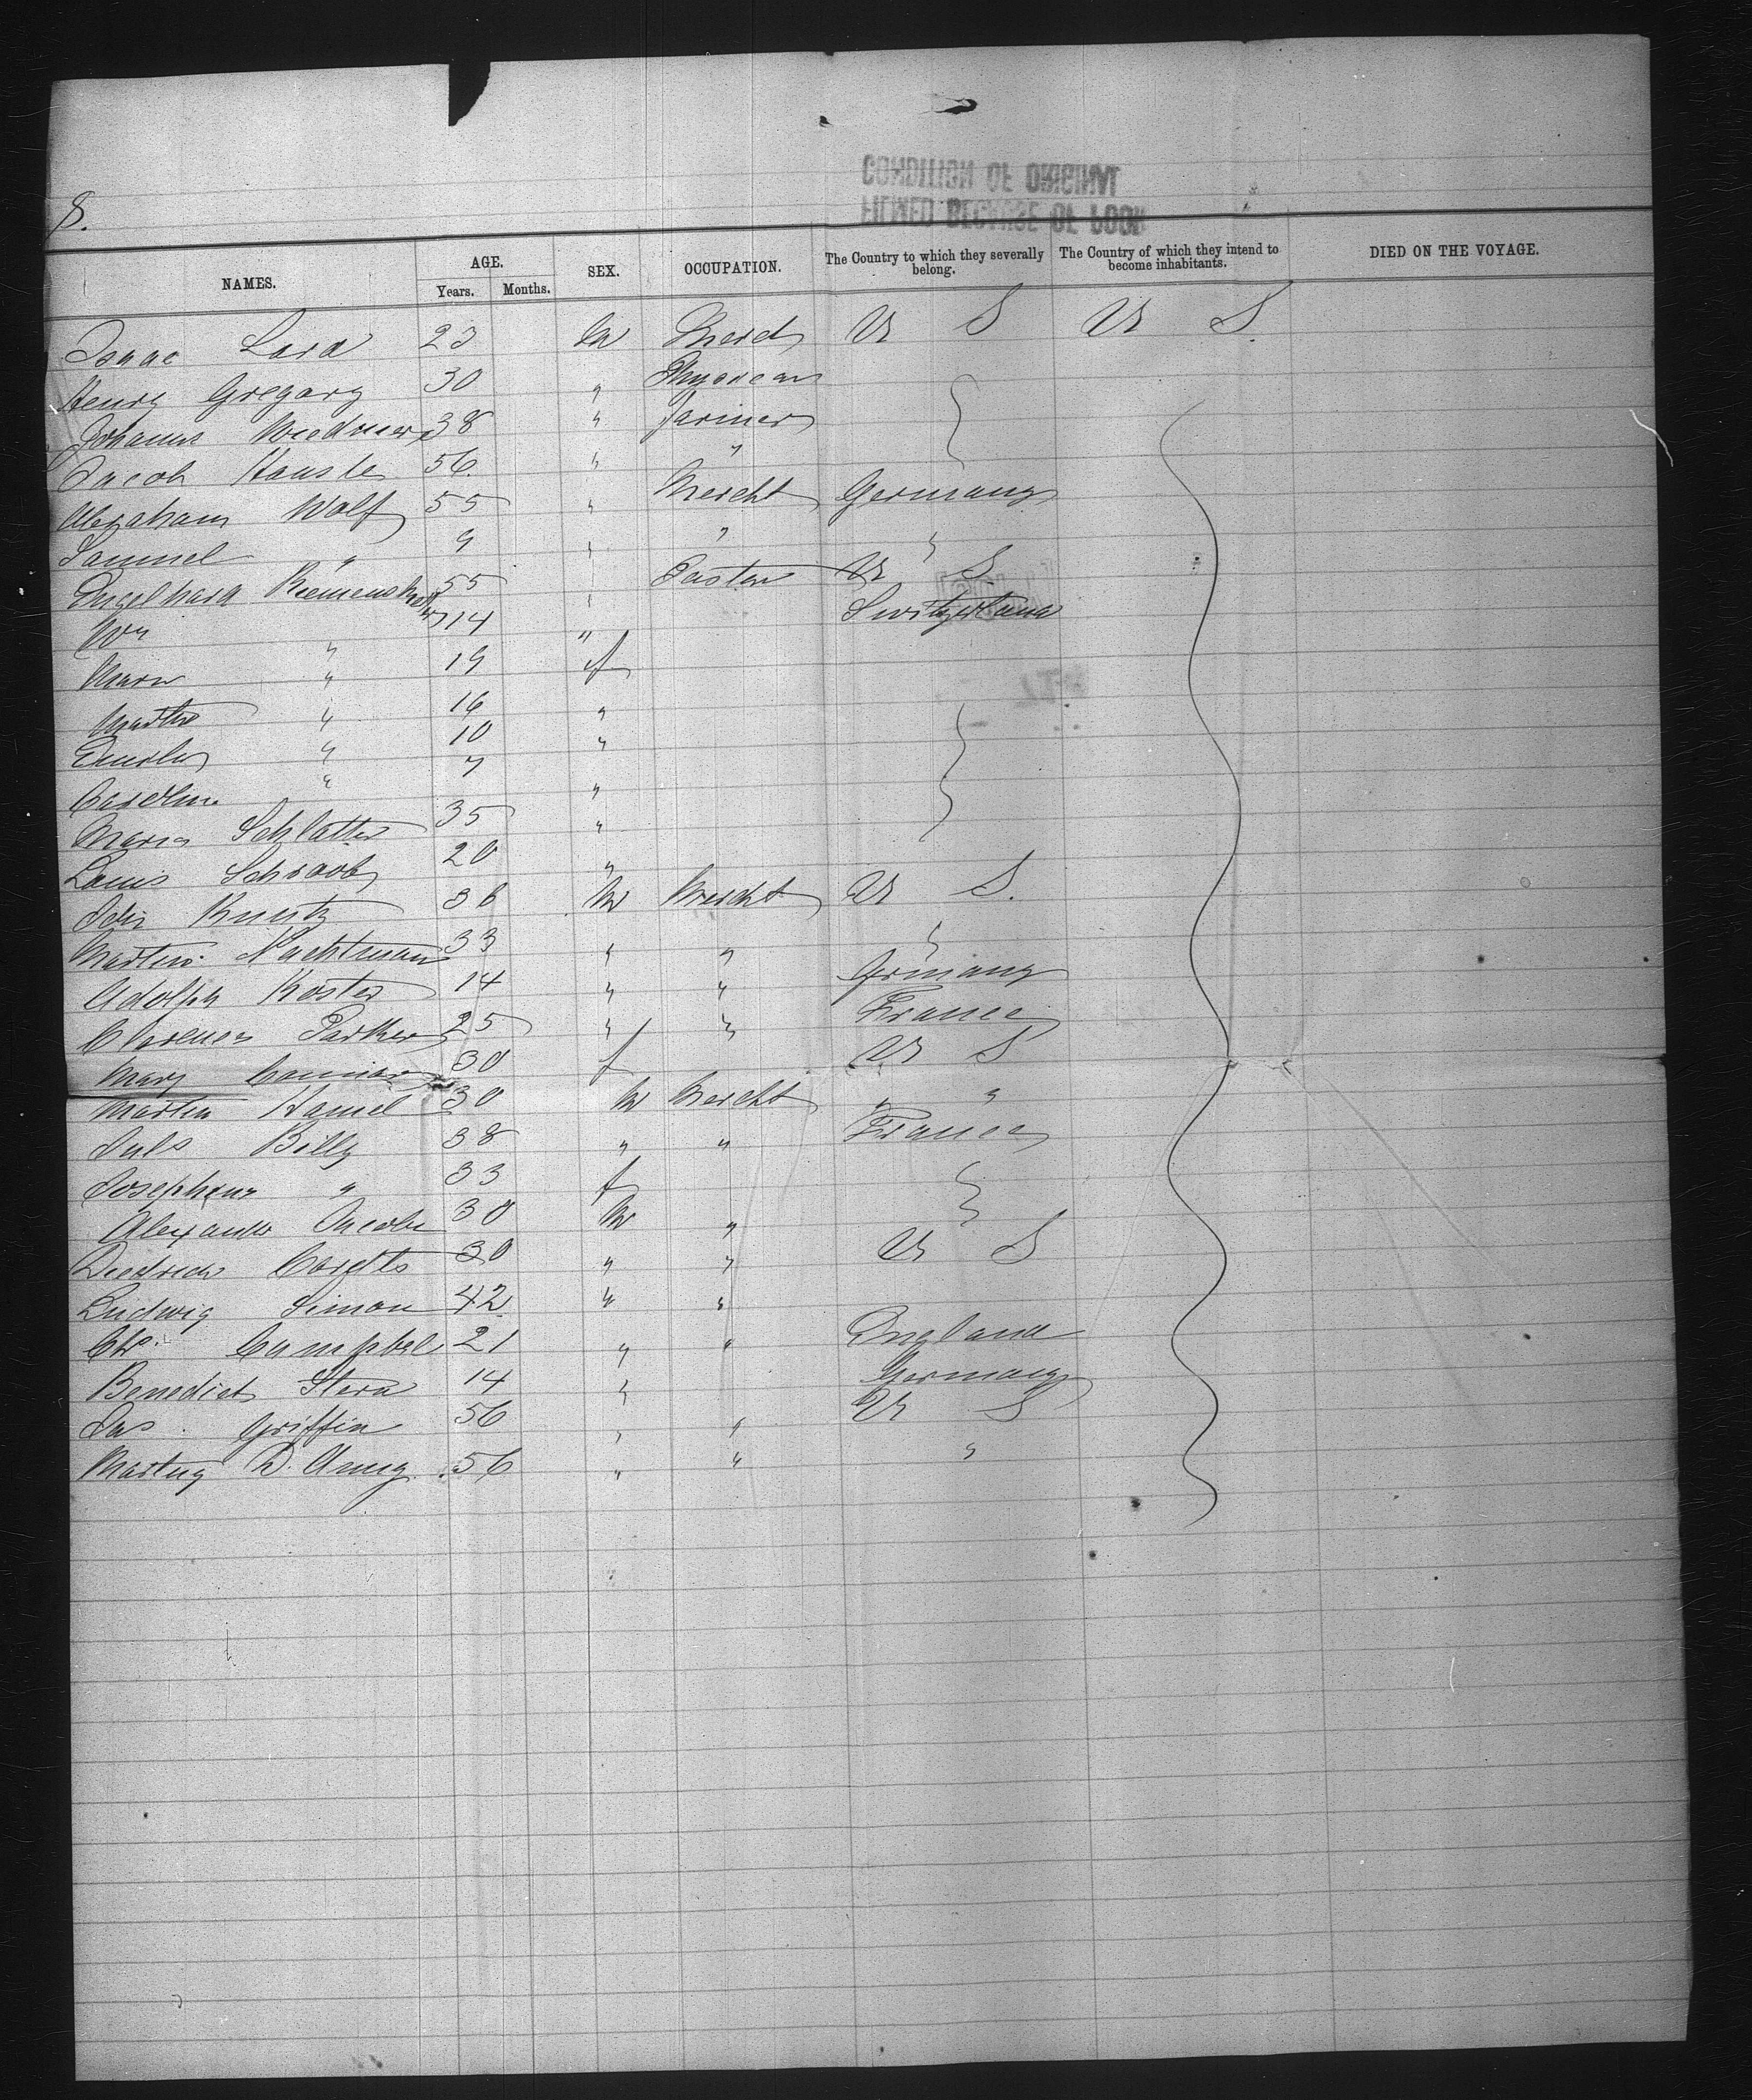 8.
CONDITION OF ORIGINAL
FILMED BECAUSE OF POOR
NAMES. AGE. Years. Months. SEX. OCCUPATION. The Country to which they severally belong. The Country of which they intend to become inhabitants. DIED ON THE VOYAGE.
Isaac Lord 23 M U S U S.
Henry Gregory 30 "
38 " farmer
Jacob 56 " "
Abraham Wolf 55 " Mercht Germany
Samuel " 9 " " "
Engelhard 55 " Pastor U S
Wm " 14 " Switzerland
" 19 f
Martha " 16 "
" 10 "
Caroline " 7 "
Maria Schlatter 35 "
Louis 20 "
Kuntz 36 M Mercht U S.
Martin Nachtman 33 " " "
Adolph Koster 14 " " Germany
Clarence Parker 25 " " France
Mary 30 f U S
Martin Hamel 30 M Mercht " "
Jules Billy 38 " " France
Josephine " 33 f
Alexander Jacobi 30 M "
Diedrich Cordts 30 " " U S
Ludwig Simon 42 " "
Campbel 21 " " England
Benedict Stern 14 " Germany
Jas. Griffin 56 " " U S
56 " " "